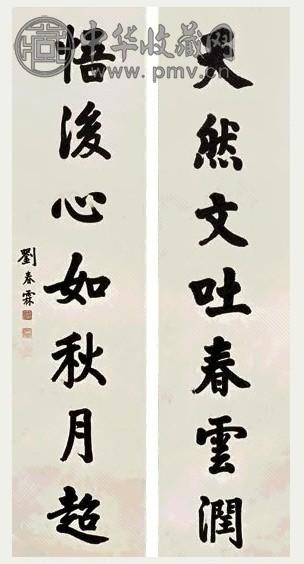 天然文吐春雲潤
悟後心如秋月超
劉春霖
中华收藏网
www.pmv.cn